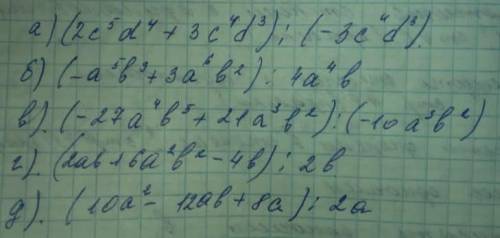 а) (2c⁵d⁴ + 3c⁴d³) : (-3c⁴d³).
б) (-a⁵b³ + 3a⁶b²) : 4a⁴b
в). (-27a⁴b⁵ + 21a³b²) : (-10a³b²)
г). (2ab + 6a²b² - 4b) : 2b
д). (10a² - 12ab + 8a) : 2a